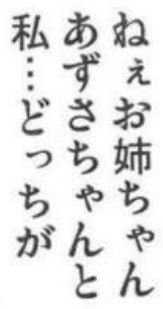 ねぇお姉ちゃん
あずさちゃんと
私…どっちが